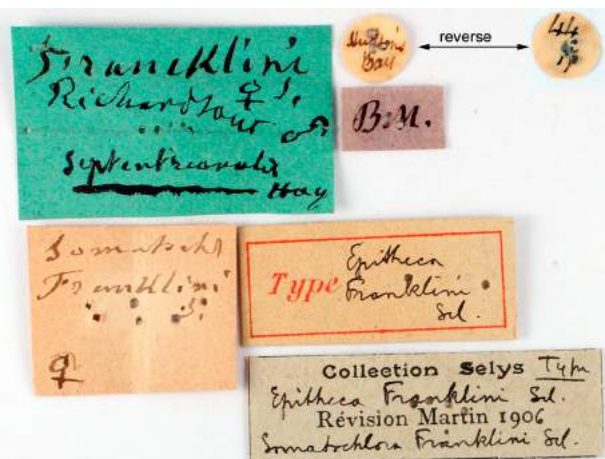 Francklini
Richardson ♀ S.
♂
Septentrionalis
Hag
Hudson's
Bay
reverse
44
17
B.M.
Somatochl
Francklini
S.
♀
Type
Epitheca
Franklini
Sel.
Collection Selys Type
Epitheca Franklini Sel.
Révision Martin 1906
Somatochlora Franklini Sel.